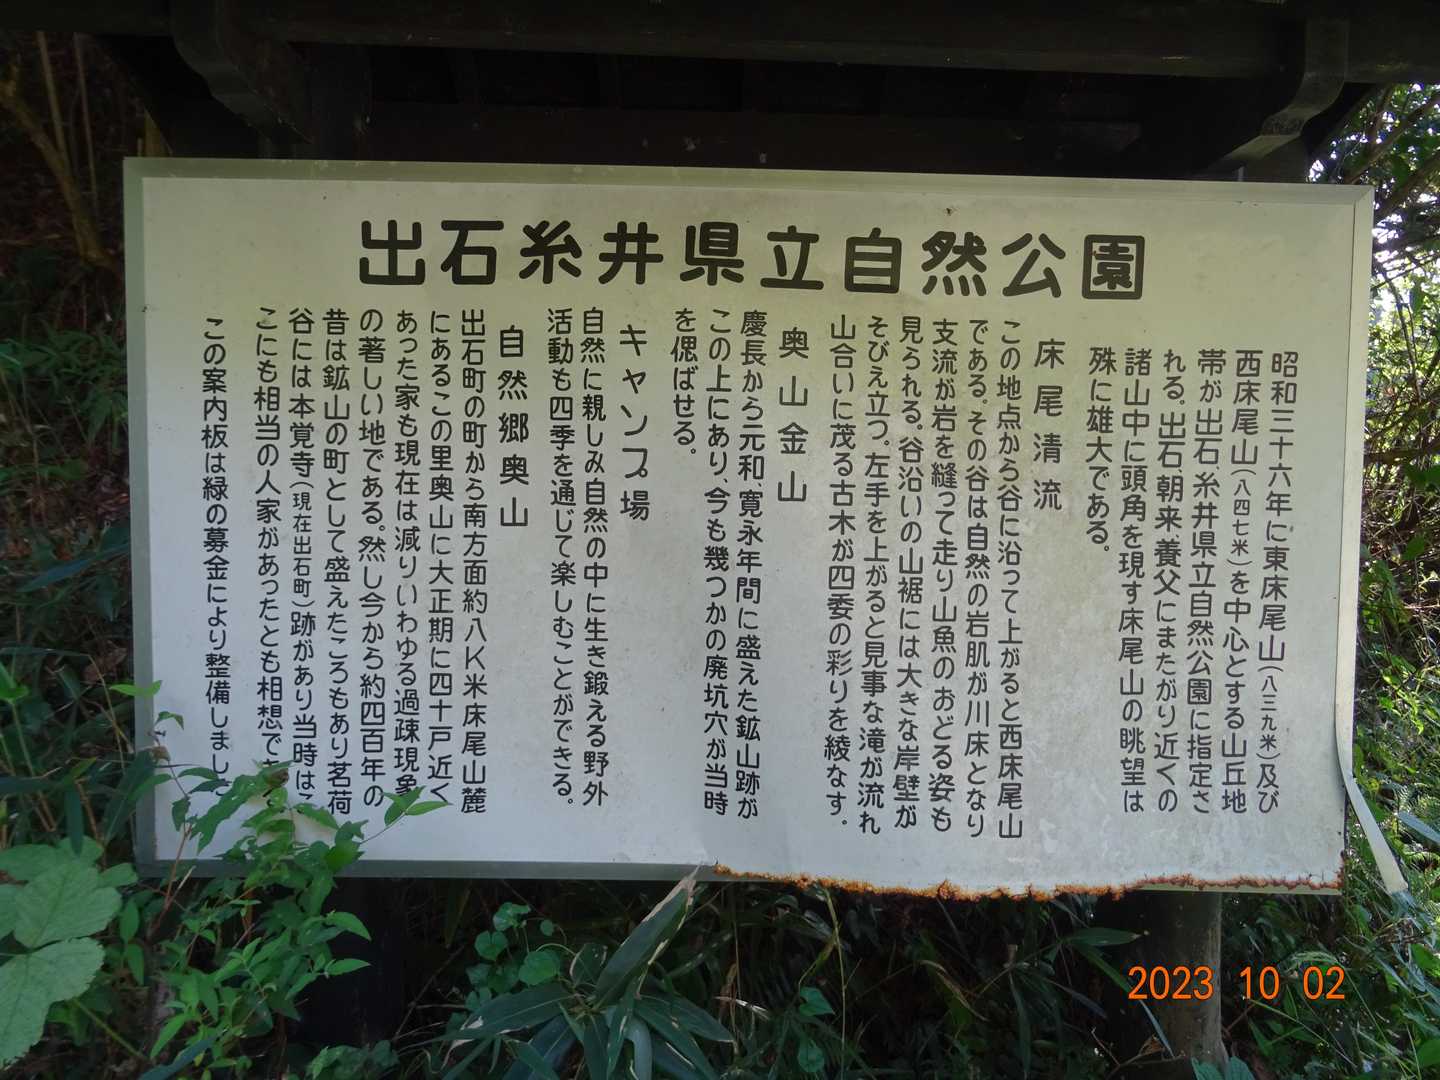 出石糸井県立自然公園
昭和三十六年に東床尾山(八三九米)及び
西床尾山(八四七米)を中心とする山丘地
帯が出石、糸井県立自然公園に指定さ
れる。出石、朝来、養父にまたがり近くの
諸山中に頭角を現す床尾山の眺望は
殊に雄大である。
床尾清流
この地点から谷に沿って上がると西床尾山
である。その谷は自然の岩肌が川床となり
支流が岩を縫って走り山魚のおどる姿も
見られる。谷沿いの山裾には大きな岸壁が
そびえ立つ。左手を上がると見事な滝が流れ
山合いに茂る古木が四委の彩りを綾なす。
奥山金山
慶長から元和、寛永年間に盛えた鉱山跡が
この上にあり、今も幾つかの廃坑穴が当時
を偲ばせる。
キャンプ場
自然に親しみ自然の中に生き鍛える野外
活動も四季を通じて楽しむことができる。
自然郷奥山
出石町の町から南方面約八K米床尾山麓
にあるこの里奥山に大正期に四十戸近く
あった家も現在は減りいわゆる過疎現象
の著しい地である。然し今から約四百年の
昔は鉱山の町として盛えたころもあり茗荷
谷には本覚寺(現在出石町)跡があり当時は
こにも相当の人家があったとも相想でき
この案内板は緑の募金により整備しまし
2023 10 02